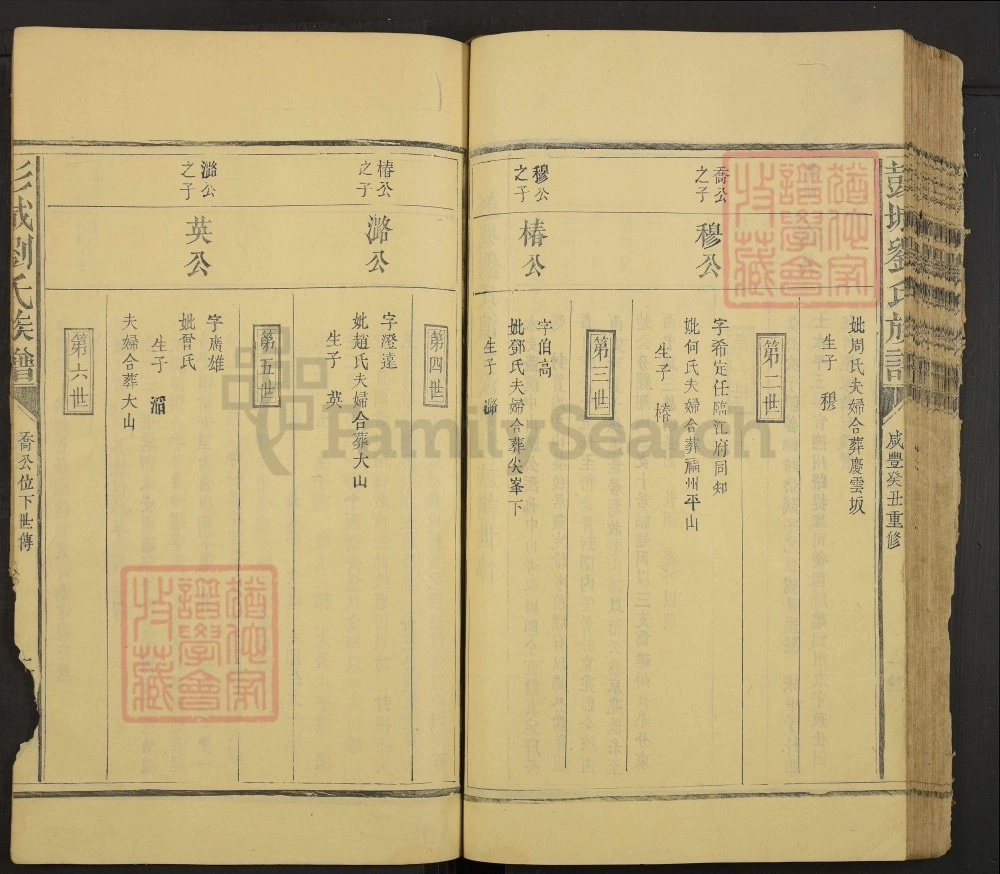 彭城劉氏族譜
咸豐癸丑重修
妣周氏夫婦合葬慶雲坂
生子 穆
第二世
喬公之子
穆公
字希定任臨江府同知
妣何氏夫婦合葬福州平山
生子 椿
第三世
穆公之子
椿公
字伯高
妣鄧氏夫婦合葬尖峯下
生子 潞
第四世
椿公之子
潞公
字澄遠
妣趙氏夫婦合葬大山
生子 英
第五世
潞公之子
英公
字廣雄
妣曾氏
生子
夫婦合葬大山
第六世
彭城劉氏族譜
喬公位下世傳
猶他家譜學會收藏
猶他家譜學會收藏
FamilySearch